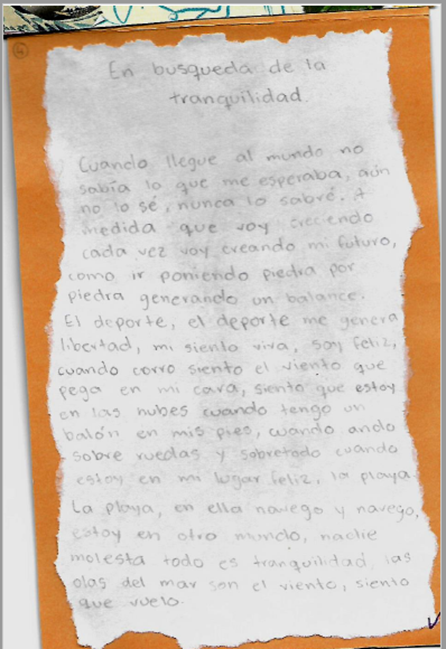 4
En busqueda de la
tranquilidad.
Cuando llegue al mundo no
sabía lo que me esperaba, aún
no lo sé, nunca lo sabré. A
medida que voy creciendo
cada vez voy creando mi futuro,
como ir poniendo piedra por
piedra generando un balance.
El deporte, el deporte me genera
libertad, mi siento viva, soy feliz,
cuando corro siento el viento que
pega en mi cara, siento que estoy
en las nubes cuando tengo un
balón en mis pies, cuando ando
sobre ruedas y sobretodo cuando
estoy en mi lugar feliz, la playa.
La playa, en ella navego y navego,
estoy en otro mundo, nadie
molesta todo es tranquilidad, las
olas del mar son el viento, siento
que vuelo.